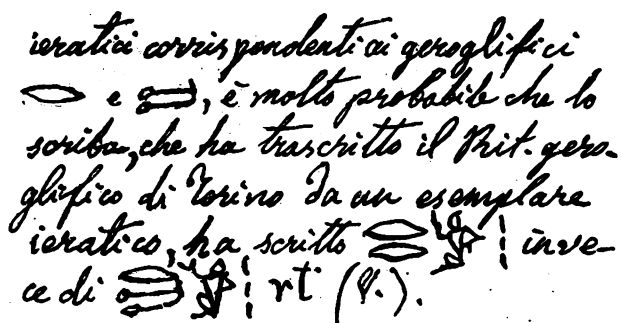 ieratici corrispondenti ai geroglifici
𓂋 e 𓍿, è molto probabile che lo
scriba, che ha trascritto il Rit. gero-
glifico di Torino da un esemplare
ieratico, ha scritto 𓂋𓂋 inve-
ce di 𓂋𓍿 rt